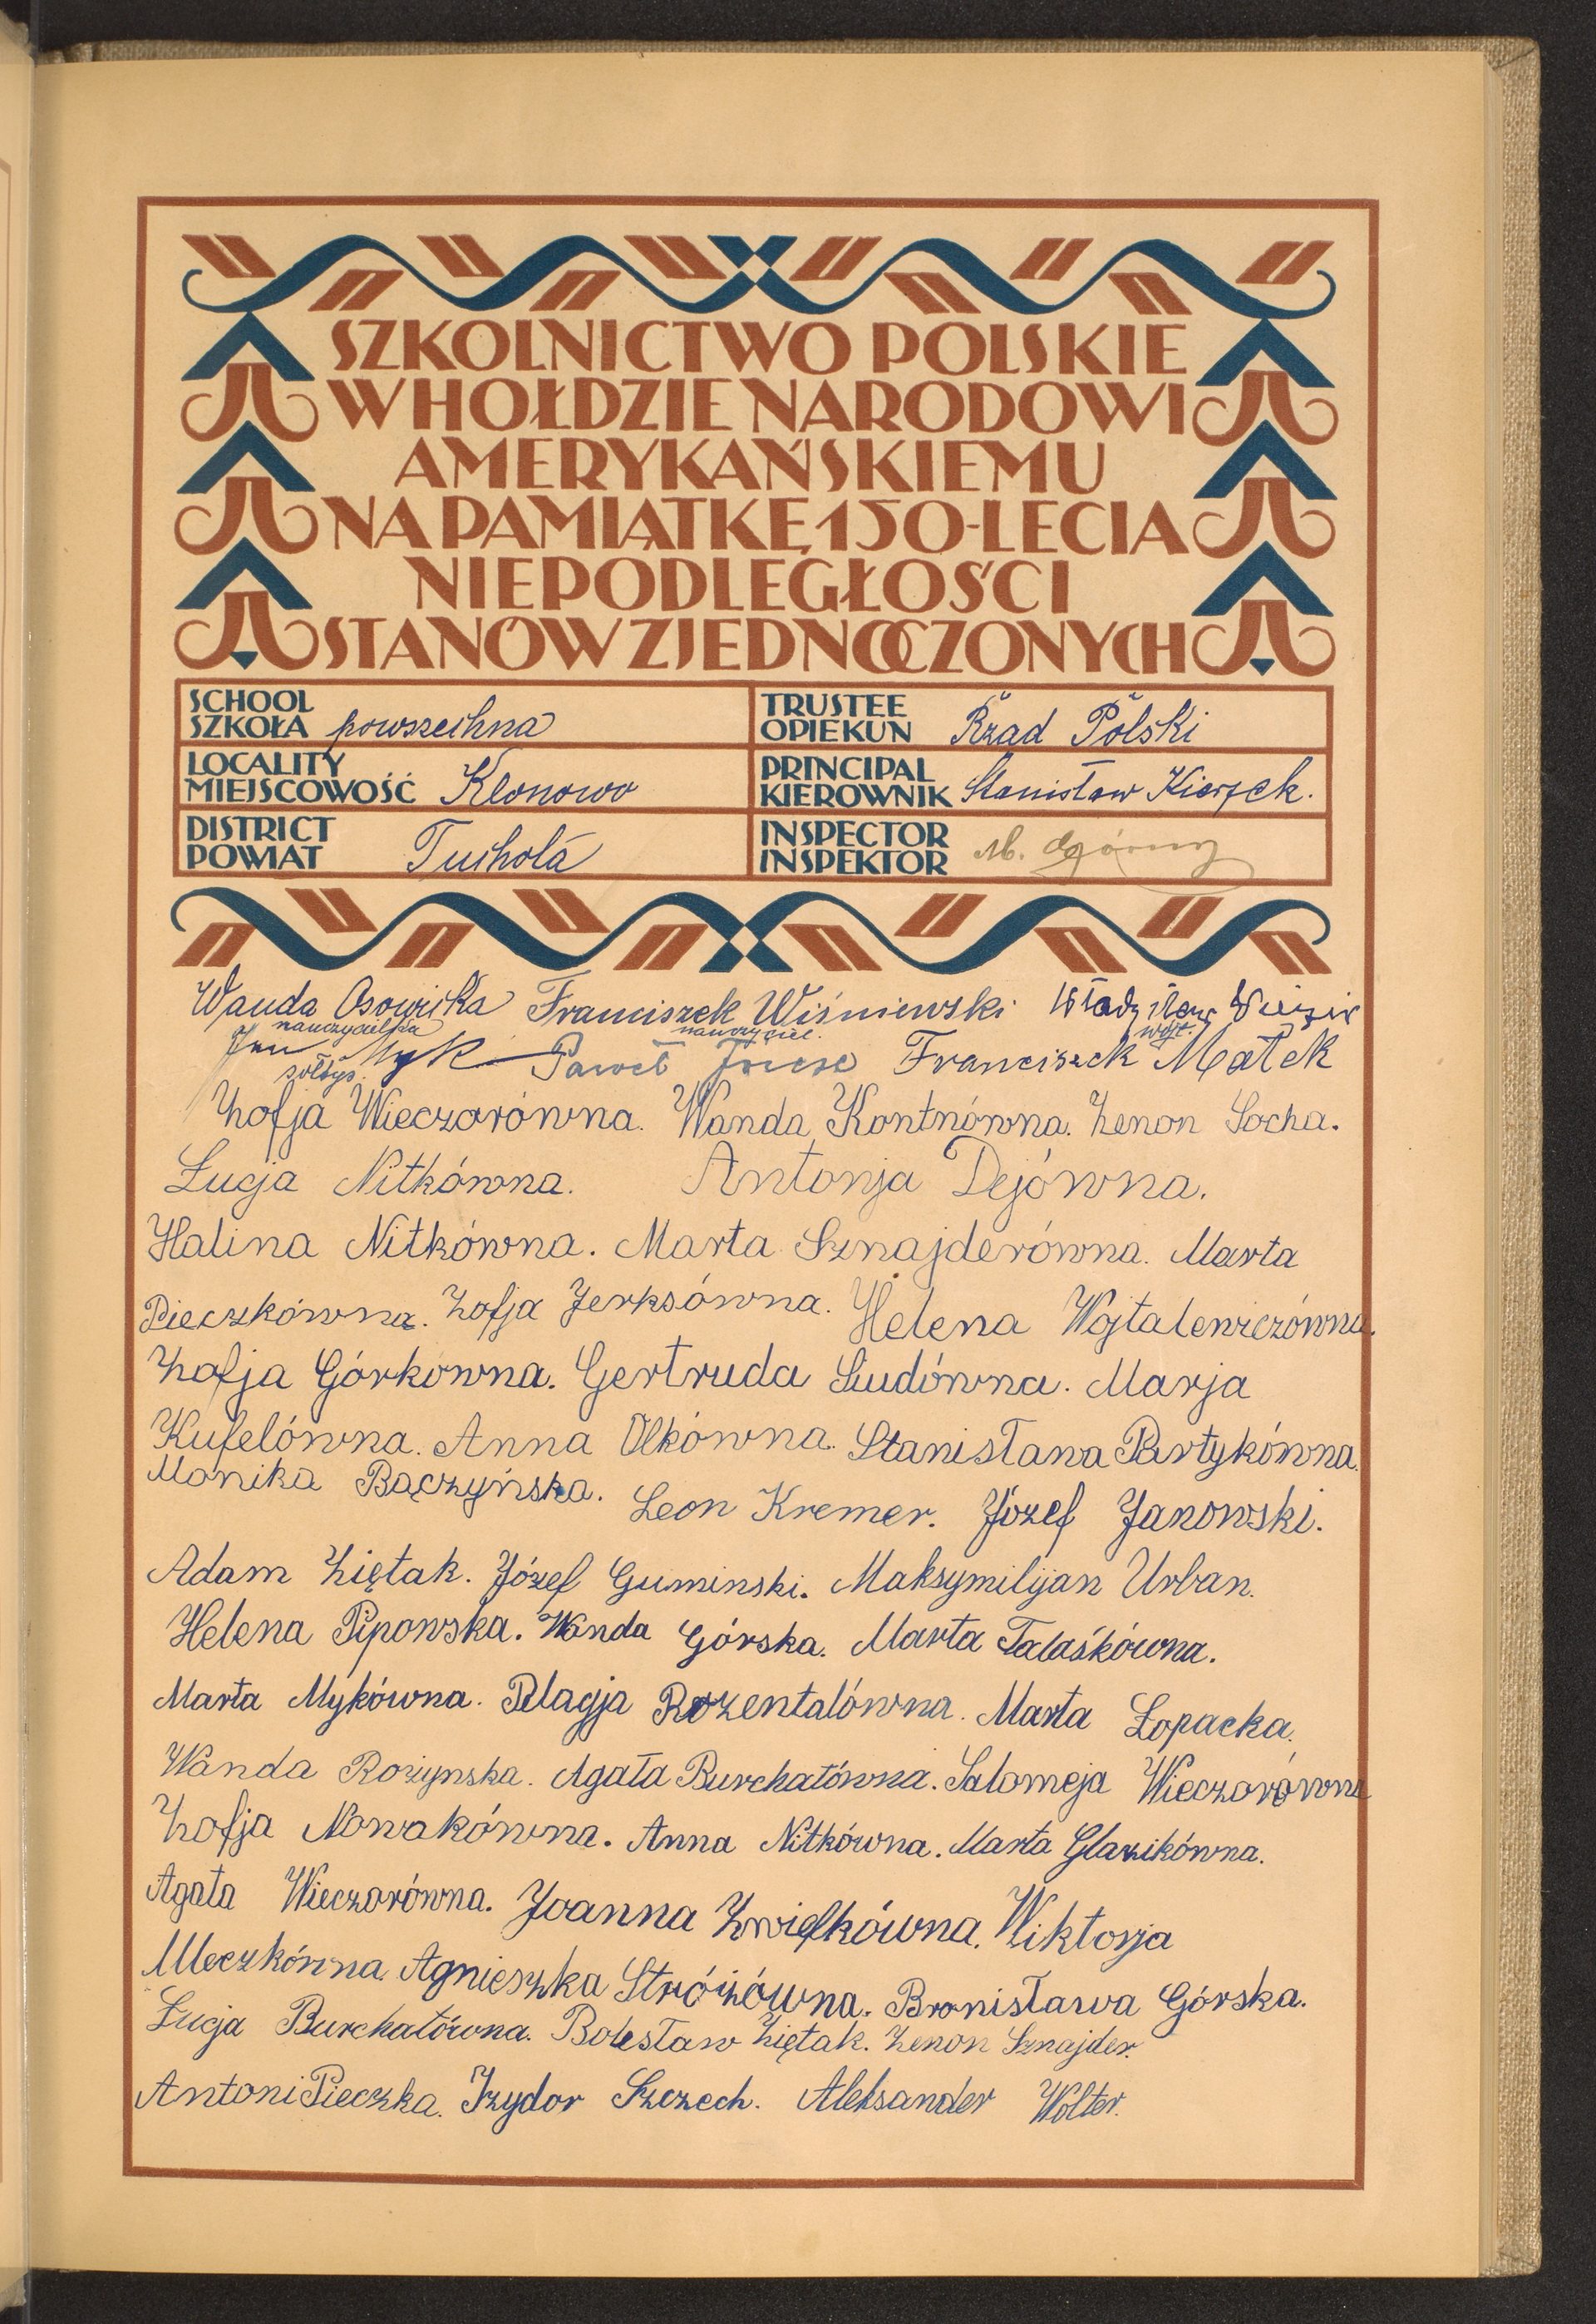 SZKOLNICTWO POLSKIE
W HOŁDZIE NARODOWI
AMERYKAŃSKIEMU
NA PAMIĄTKĘ 150-LECIA
NIEPODLEGŁOŚCI
STANÓW ZJEDNOCZONYCH
SCHOOL
SZKOŁA powszechna
TRUSTEE
OPIEKUN Rząd Polski
LOCALITY
MIEJSCOWOŚĆ Klonowo
PRINCIPAL
KIEROWNIK Stanisław Kierzek.
DISTRICT
POWIAT Tuchola
INSPECTOR
INSPEKTOR M. Górny
Wanda Osowicka Franciszek Wiśniewski Władysław
nauczycielka nauczyciel. wójt.
Jan Myk Paweł Franciszek Małek
sołtys.
Zofja Wieczorówna. Wanda Kontnówna. Zenon Socha.
Łucja Nitkówna. Antonja Dejówna.
Halina Nitkówna. Marta Sznajderówna. Marta
Pieczkówna. Zofja Jerksówna. Helena Wojtalewiczówna.
Zofja Górkowna. Gertruda Siudówna. Marja
Kufelówna. Anna Olkówna. Stanisława Partykówna.
Monika Bączyńska. Leon Kremer. Józef Janowski.
Adam Ziętak. Józef Guminski. Maksymilijan Urban.
Helena Pipowska. Wanda Górska. Marta Talaśkówna.
Marta Mykówna. Pelagja Rozentalówna. Marta Łopacka.
Wanda Rożynska. Agata Burchatówna. Salomeja Wieczorówna
Zofja Nowakówna. Anna Nitkówna. Marta Glazikówna.
Agata Wieczorówna. Joanna Zwiefkówna. Wiktorja
Meczkówna. Agnieszka Stróżówna. Bronisława Górska.
Łucja Burchatówna. Bolesław Ziętak. Zenon Sznajder.
Antoni Pieczka. Izydor Szczech. Aleksander Wolter.